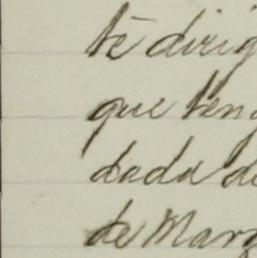 te dirig
que ten
dada d
de Marz